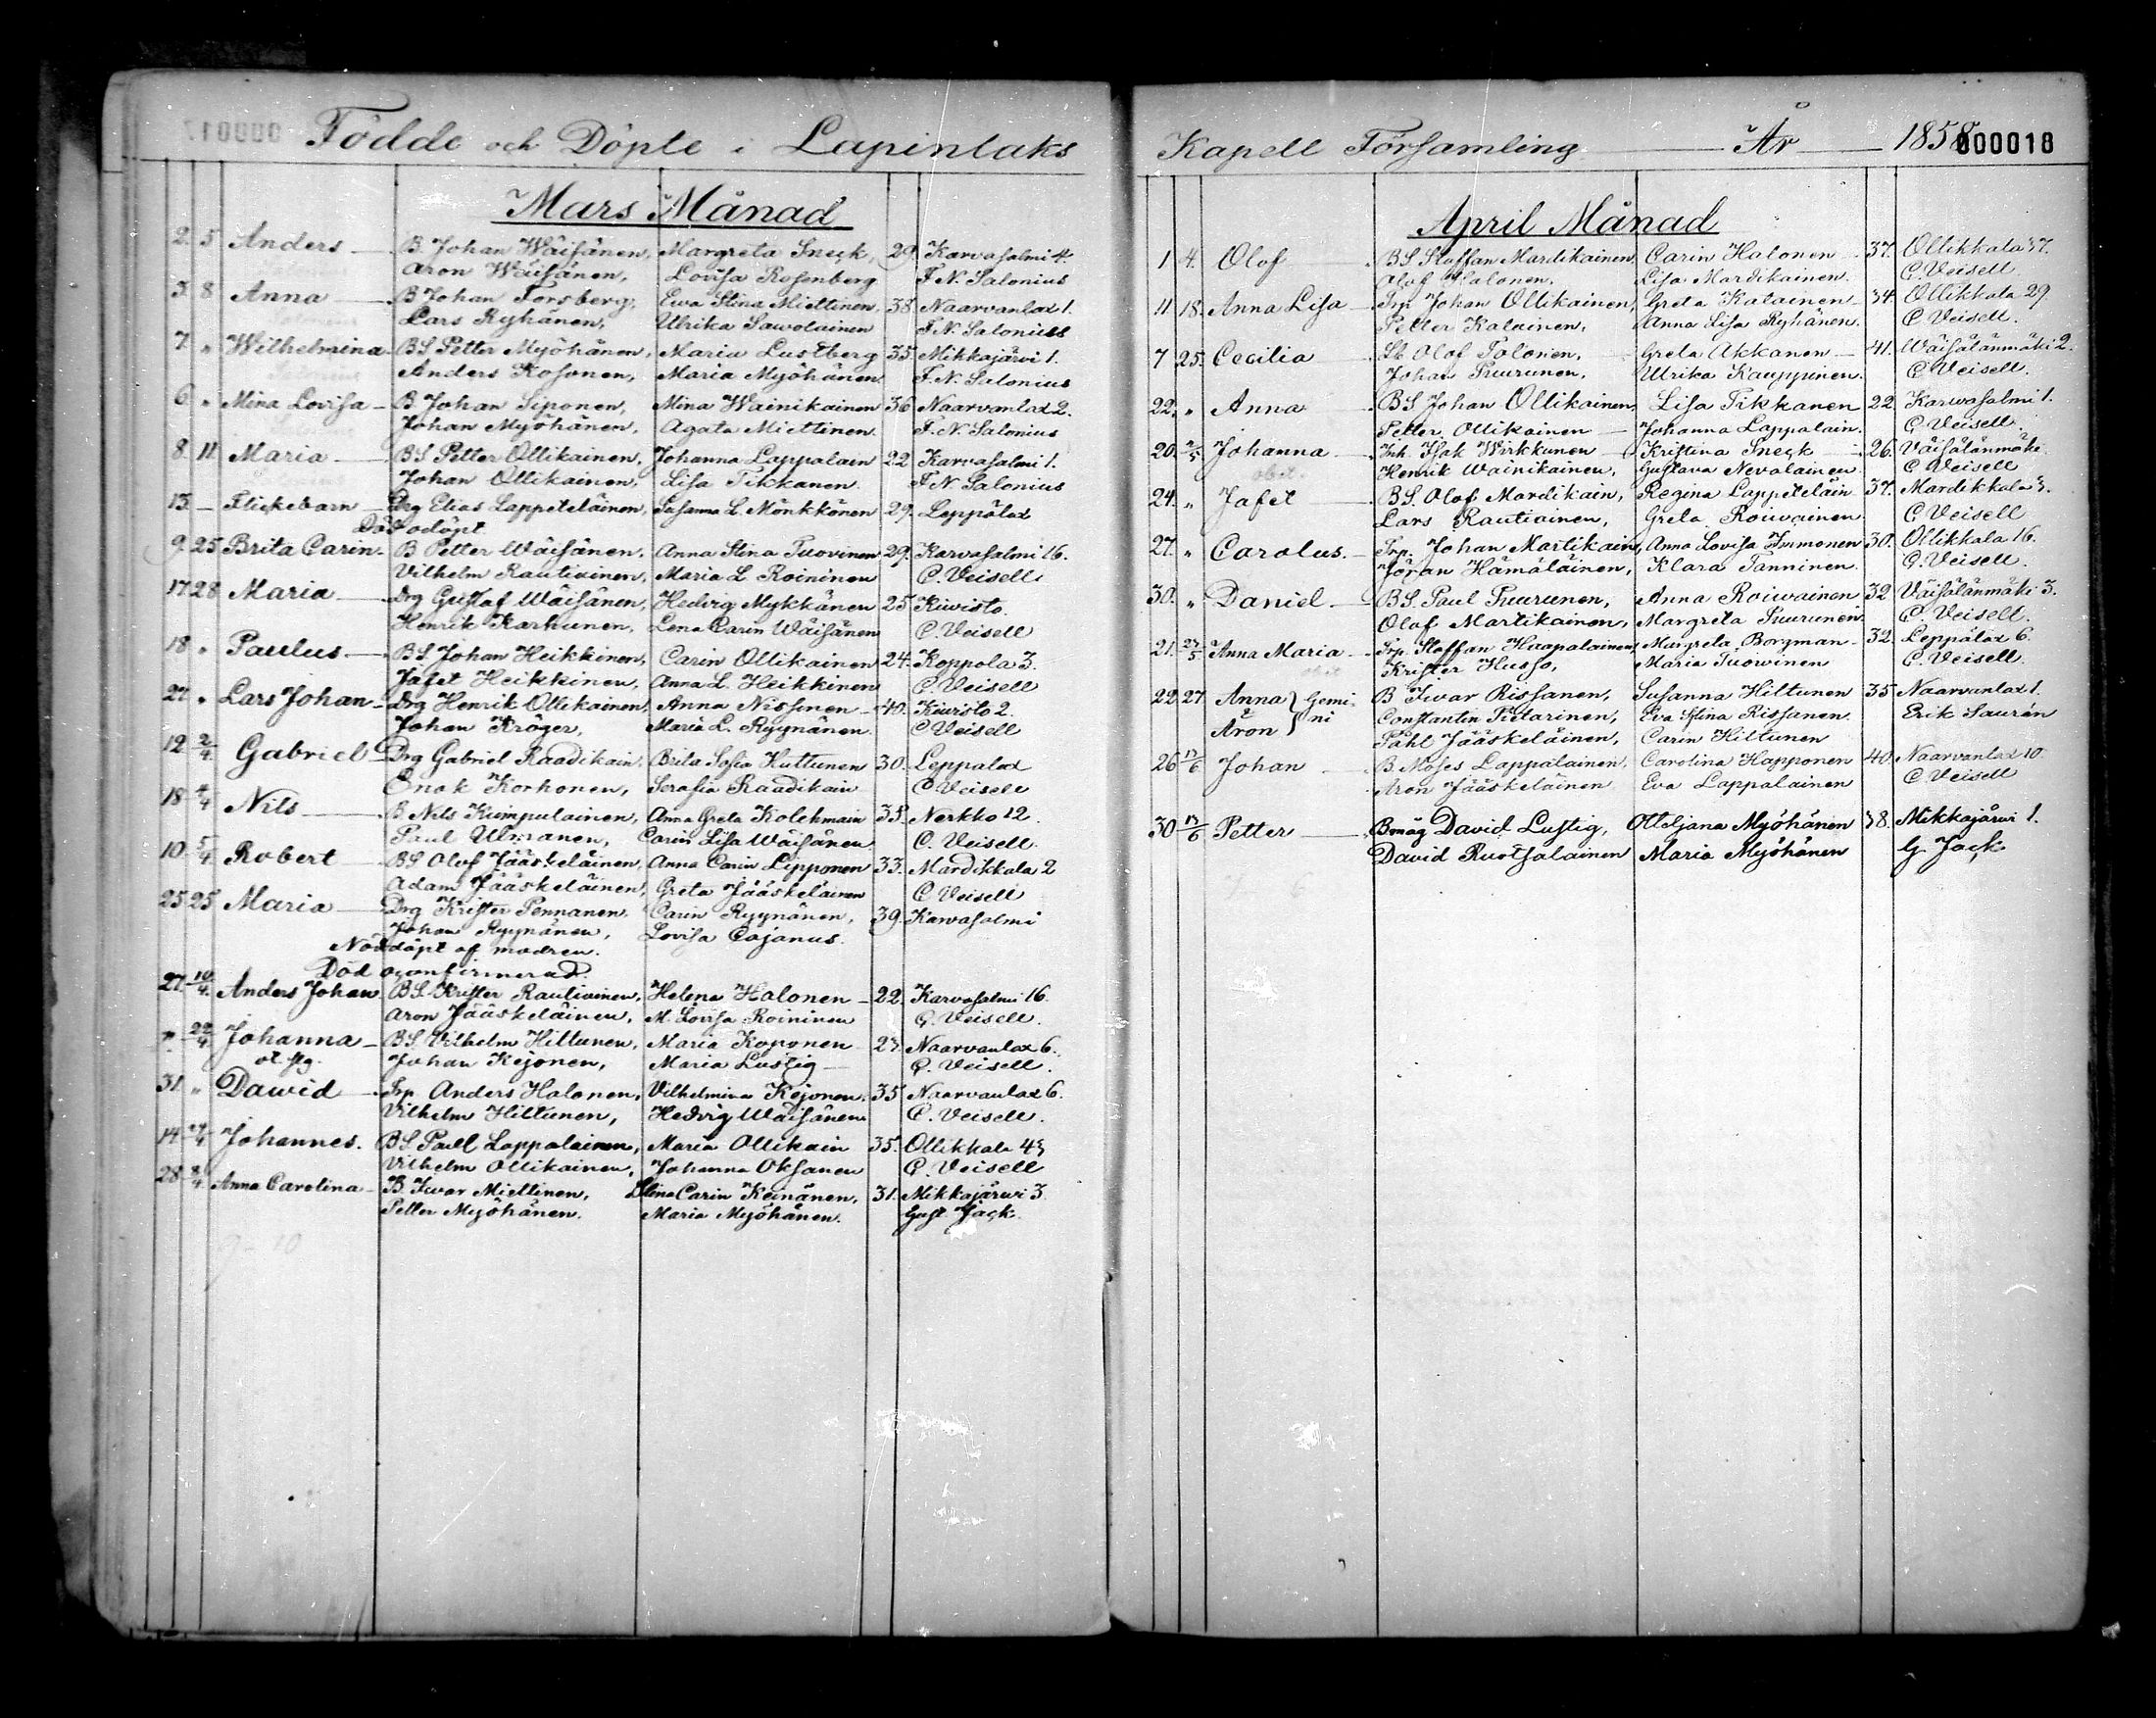 Födde och Döpte i Lapinlaks
Mars Månad
2. 5 Anders — B Johan Wäisänen, Margreta Sneck, 29. Karvasalmi 4.
Aron Wäisänen, Lovisa Rosenberg F. N. Salonius
3. 8 Anna — B Johan Forsberg, Ewa Stina Miettinen, 38 Naarvanlax 1.
Lars Ryhänen, Ulrika Sawolainen F. N. Salonius
7. " Wilhelmina BS Petter Myöhänen, Maria Lustberg 35 Mikkajärvi 1.
Anders Kosonen, Maria Myöhänen F. N. Salonius
6. " Mina Lovisa — B Johan Siponen, Mina Wainikainen 36 Naarvanlax 2.
Johan Myöhänen, Agata Miettinen. F. N. Salonius
8. 11 Maria — BS Petter Ollikainen, Johanna Lappalain 22 Karvasalmi 1.
Johan Ollikainen, Lisa Tikkanen F. N. Salonius
13. — Flickebarn — Drg Elias Lappeteläinen, Susanna L. Mönkkönen 29. Leppälax
Död odöpt
9. 25 Brita Carin. B Petter Wäisänen, Anna Stina Tuovinen 29. Karvasalmi 16.
Vilhelm Rautiainen, Maria L Roininen C. Veisell
17. 28 Maria — Drg Gustaf Wäisänen, Hedvig Mykkänen 25 Kiwisto.
Henrik Karhunen, Lena Carin Wäisänen C. Veisell
18 " Paulus — BS. Johan Heikkinen, Carin Ollikainen 24. Koppola 3.
Jafet Heikkinen, Anna L. Heikkinen C. Veisell
27. " Lars Johan — Drg Henrik Ollikainen, Anna Nissinen — 40. Kiuristo 2.
Johan Kröger, Maria L. Ryynänen C Veisell
12 2/4. Gabriel — Drg Gabriel Raadikain, Brita Sofia Huttunen 30. Leppalax
Enok Korhonen, Serafia Raadikain C Veisell
18 4/4 Nils — B. Nils Kumpulainen, Anna Greta Kolehmain 35. Nerkko 12.
Paul Ulmanen, Carin Lisa Wäisänen C. Veisell.
10. 5/4 Robert — BS Olof Jääskeläinen, Anna Carin Lipponen 33. Mardikkala 2
Adam Jääskeläinen, Greta Jääskeläinen C Veisell
25 25 Maria — Drg Krister Pennanen. Carin Ryynänen, 39. Karvasalmi
Johan Ryynänen, Lovisa Cajanus.
Nöddöpt af modren.
Död oconfirmerad.
27. 10/4. Anders Johan BS Krister Rautiainen, Helena Halonen — 22. Karvasalmi 16.
Aron Jääskeläinen, M. Lovisa Roininen C. Veisell.
22/4 Johanna — BS. Vilhelm Hiltunen, Maria Koponen 23. Naarvanlax 6.
Johan Kejonen, Maria Lustig — C. Veisell.
31. " Dawid — Trp Anders Halonen, Vilhelmina Kejonen. 35 Naarvanlax 6.
Vilhelm Hiltunen, Hedvig Wäisänen C. Veisell.
14 Johannes. BS. Paul Lappalainen, Maria Ollikain 35. Ollikkala 43
Vilhelm Ollikainen, Johanna Oksanen C. Veisell
28 Anna Carolina — B. Iwar Miettinen, Stina Carin Keinänen, 31. Mikkajärwi 3.
Petter Myöhänen. Maria Myöhänen. Gust Jack.
9 - 10
Kapell Församling — År — 1858
000018
April Månad
1 4. Olof — BS Staffan Mardikainen, Carin Halonen 37. Ollikkala 37.
Olof Halonen. Lisa Mardikainen. C. Veisell.
11 18. Anna Lisa — Trp Johan Ollikainen, Greta Kalainen — 34. Ollikkala 29.
Petter Kalainen, Anna Lisa Ryhänen. C Veisell.
7 25. Cecilia — Olof Tolonen, Greta Akkanen — 41. Wäisälänmäki 2.
Johan Puurunen, Ulrika Kauppinen. C. Veisell.
22. " Anna BS Johan Ollikainen, Lisa Tikkanen 22 Karwasalmi 1.
Petter Ollikainen — Johanna Lappalain. C Veisell.
20. 2/5 Johanna — Inh. Isak Wirkkunen — Kristina Sneck — 26. Väisälänmäki
obit. Henrik Wainikainen, Gustava Nevalainen C Veisell
24. " Jafet BS. Olof Mardikain, Regina Lappeteläin 37. Mardikkala 3.
Lars Rautiainen, Greta Roivainen C Veisell
27. " Carolus. — Trp. Johan Martikain, Anna Lovisa Immonen 30. Ollikkala 16.
Jöran Hämäläinen, Klara Tanninen. C. Veisell.
30. " Daniel. — BS. Paul Puurunen, Anna Roivainen 32 Väisälänmäki 3.
Olof Martikainen, Margreta Puurunen. C. Veisell.
21. 24/5 Anna Maria — Trp. Staffan Haapalainen, Margreta Borgman — 32. Leppälax 6.
obit Krister Husso, Maria Tuowinen C. Veisell.
22 27 Anna } Gemi- B Iwar Rissanen, Susanna Hiltunen 35 Naarvanlax 1.
& Aron } ni Constantin Pietarinen, Eva Stina Rissanen. Erik Saurén
Påhl Jääskeläinen, Carin Hiltunen
26 13/6 Johan — B. Moses Lappalainen, Carolina Happonen 40. Naarvanlax 10
Aron Jääskeläinen Eva Lappalainen C Veisell
30 13/6 Petter — Bmåg David Lustig, Ottiljana Myöhänen 38. Mikkajärwi 1.
David Ruotsalainen Maria Myöhänen G. Jack